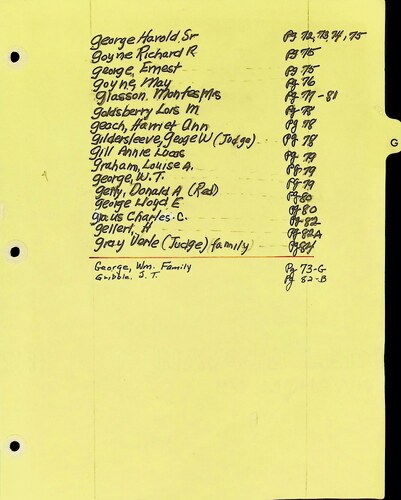 George Harold, Sr Pg 72, 73, 74, 75
Goyne Richard R Pg 75
George, Ernest Pg 75
Goyne, May Pg 76
Glasson, Montas Mrs Pg 77-81
Goldsberry Lois M Pg 78
Geach, Harriet Ann Pg 78
Gildersleeve, George W (Judge) Pg 78
Gill Annie Lucas Pg 79
Graham, Louise A. Pg 79
George, W.T. Pg 79
Getty, Donald A (Red) Pg 80
George Lloyd E Pg 80
Charles C. Pg 82
Gellert, H Pg 82A
Gray Verle (Judge) family Pg 84
George, Wm. Family Pg 73-G
Gribble, S. T. Pg 82-B
G